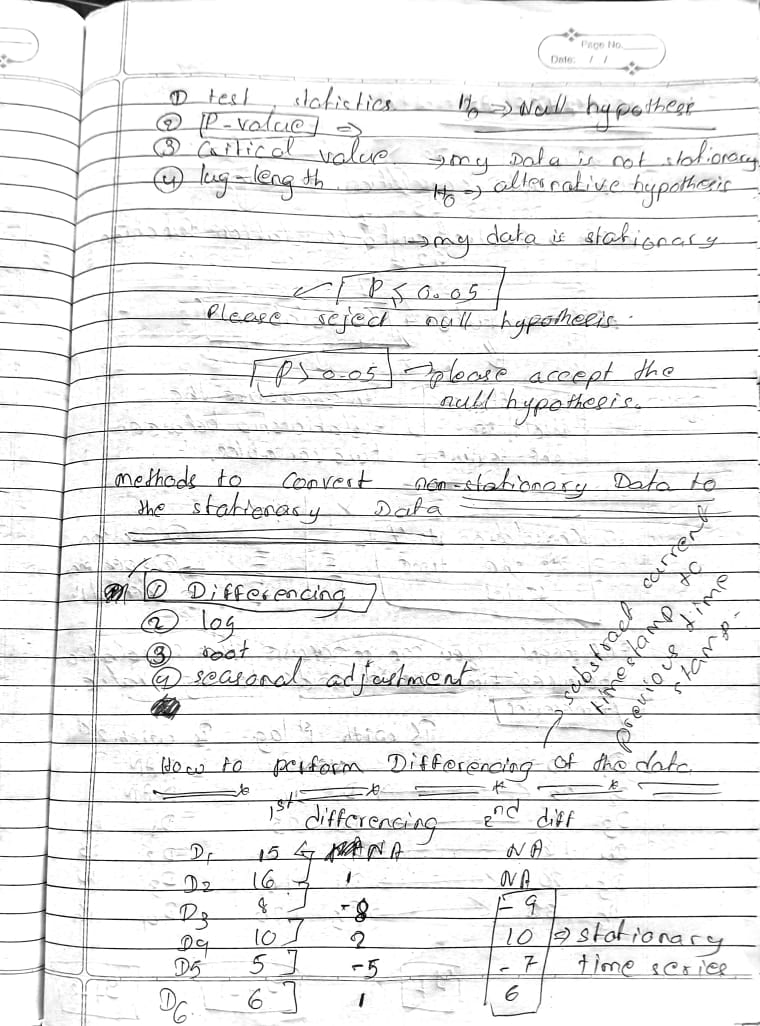 Page No.
Date: / /
① test statictics H₀ → Null hypothesis
② P-value ⇒
③ Critical value → my Data is not stationary
④ lag-length H₀ ⇒ alternative hypothesis
→ my data is stationary
P ≤ 0.05
Please reject null hypothesis.
P > 0.05 → please accept the
null hypothesis.
methods to convert non-stationary Data to
the stationary Data
① Differencing
② log
③ root
④ seasonal adjustment
→ substract current
timestamp to
previous time
stamp.
How to perform Differencing of the data
1st differencing 2nd diff
D1 15 NA NA
D2 16 1 NA
D3 8 -8 -9
D4 10 2 10 ⇒ stationary
D5 5 -5 -7 time series
D6 6 1 6